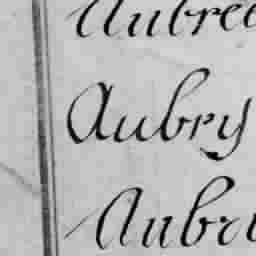 Aubree
Aubry
Aubr